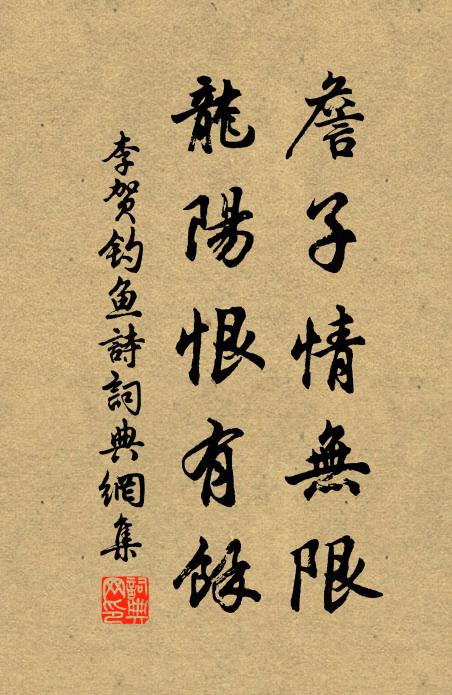 詹子情無限
龍陽恨有餘
李贺钓鱼詩詞典網集
詞典網印